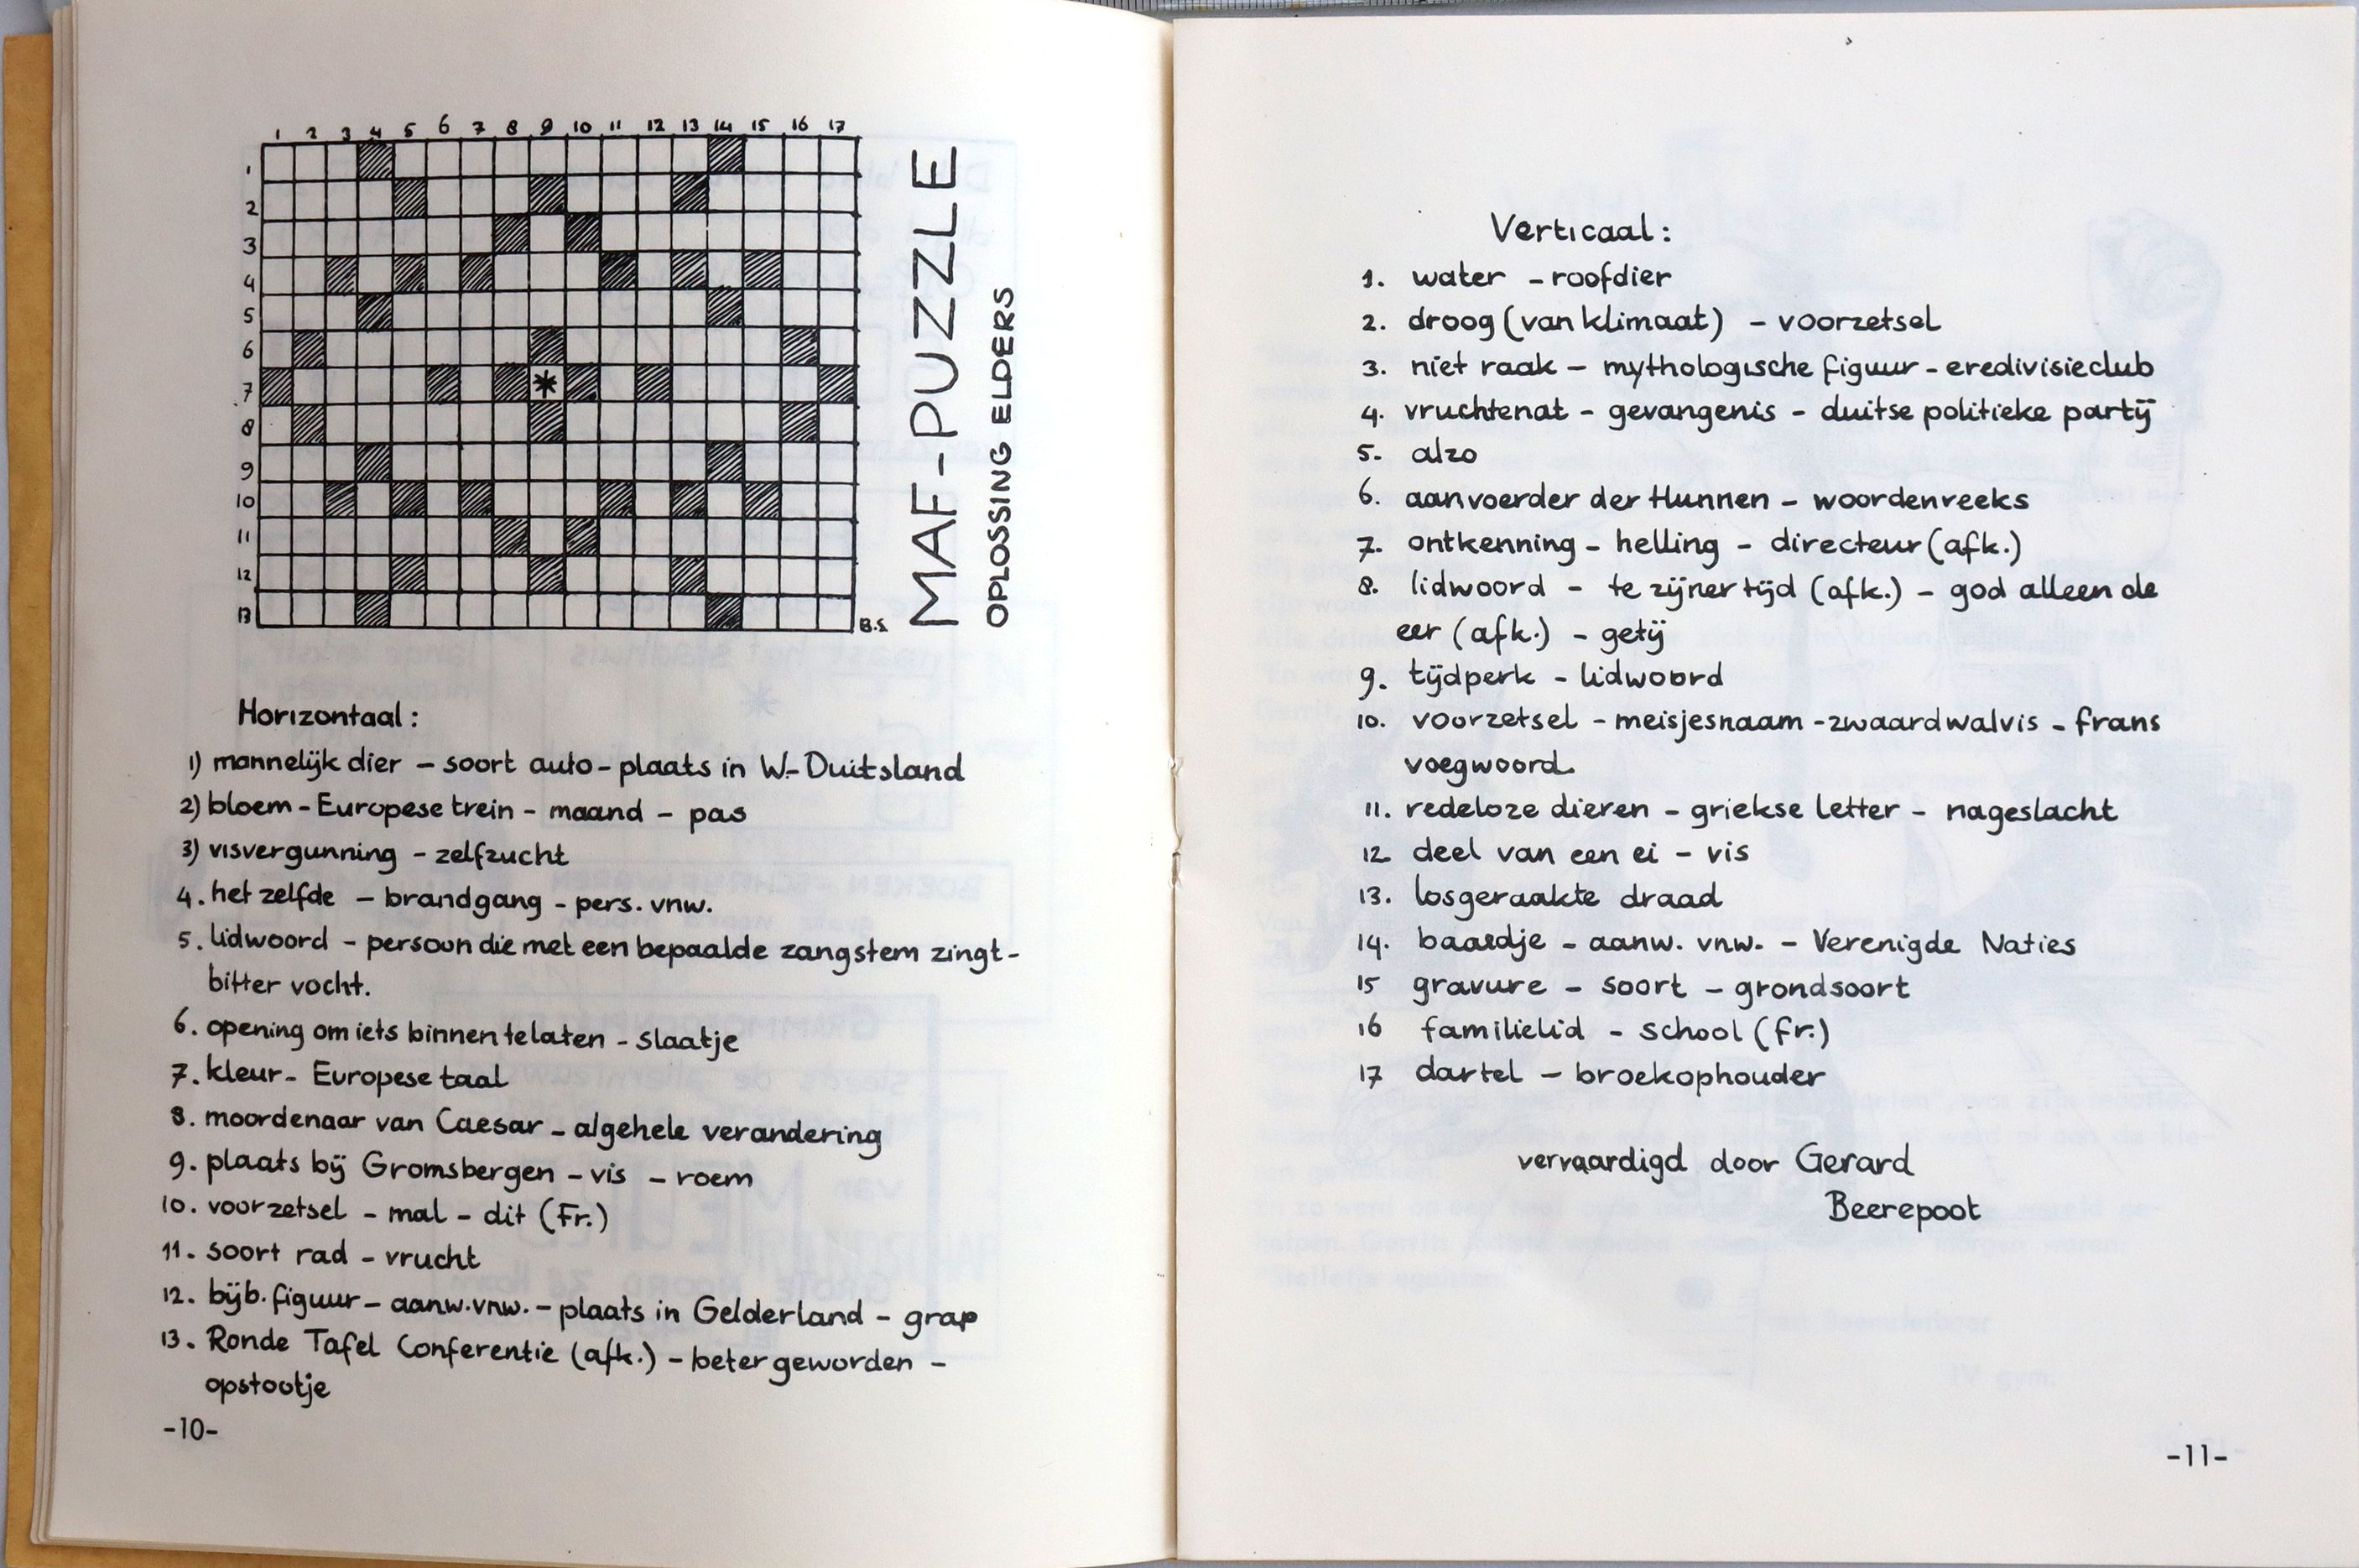 1 2 3 4 5 6 7 8 9 10 11 12 13 14 15 16 17
1
2
3
4
5
6
7
8
9
10
11
12
13
B.S
MAF-PUZZLE
OPLOSSING ELDERS
Horizontaal:
1) mannelijk dier - soort auto - plaats in W.-Duitsland
2) bloem - Europese trein - maand - pas
3) visvergunning - zelfzucht
4. het zelfde - brandgang - pers. vnw.
5. lidwoord - persoon die met een bepaalde zangstem zingt -
bitter vocht.
6. opening om iets binnen te laten - slaatje
7. kleur - Europese taal
8. moordenaar van Caesar - algehele verandering
9. plaats bij Gromsbergen - vis - roem
10. voorzetsel - mal - dit (Fr.)
11. soort rad - vrucht
12. bijb. figuur - aanw. vnw. - plaats in Gelderland - grap
13. Ronde Tafel Conferentie (afk.) - beter geworden -
opstootje
-10-
Verticaal:
1. water - roofdier
2. droog (van klimaat) - voorzetsel
3. niet raak - mythologische figuur - eredivisieclub
4. vruchtenat - gevangenis - duitse politieke partij
5. alzo
6. aanvoerder der Hunnen - woordenreeks
7. ontkenning - helling - directeur (afk.)
8. lidwoord - te zijner tijd (afk.) - god alleen de
eer (afk.) - getij
9. tijdperk - lidwoord
10. voorzetsel - meisjesnaam - zwaardwalvis - frans
voegwoord.
11. redeloze dieren - griekse letter - nageslacht
12. deel van een ei - vis
13. losgeraakte draad
14. baardje - aanw. vnw. - Verenigde Naties
15 gravure - soort - grondsoort
16 familielid - school (fr.)
17 dartel - broekophouder
vervaardigd door Gerard
Beerepoot
-11-